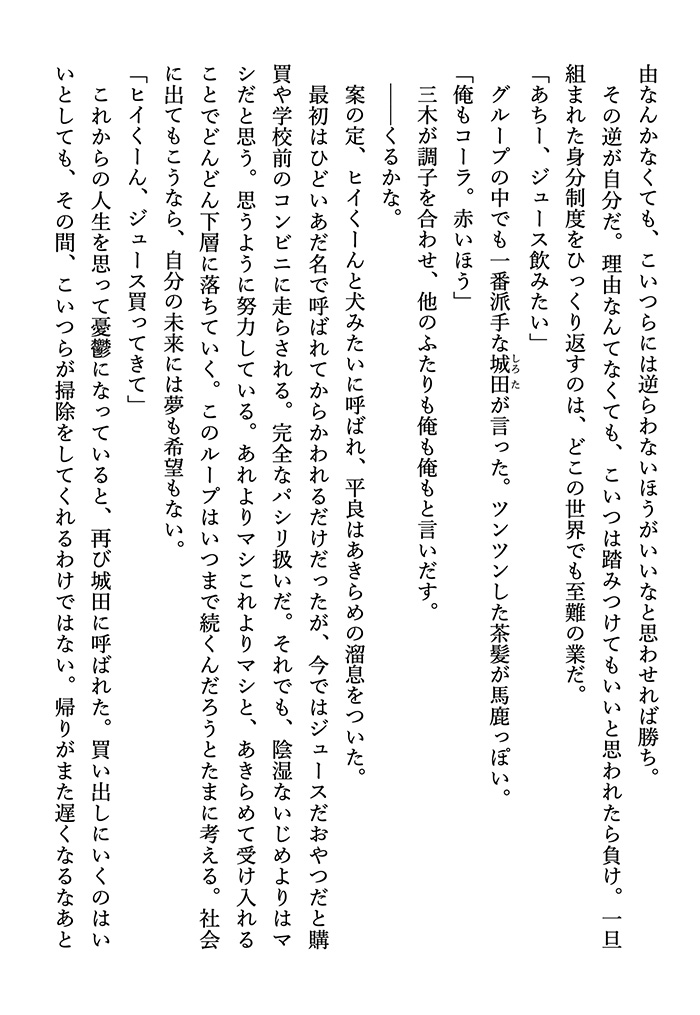 由なんかなくても、こいつらには逆らわないほうがいいなと思わせれば勝ち。
その逆が自分だ。理由なんてなくても、こいつは踏みつけてもいいと思われたら負け。一旦
組まれた身分制度をひっくり返すのは、どこの世界でも至難の業だ。
「あちー、ジュース飲みたい」
グループの中でも一番派手な城田しろたが言った。ツンツンした茶髪が馬鹿っぽい。
「俺もコーラ。赤いほう」
三木が調子を合わせ、他のふたりも俺も俺もと言いだす。
――くるかな。
案の定、ヒイくーんと犬みたいに呼ばれ、平良はあきらめの溜息をついた。
最初はひどいあだ名で呼ばれてからかわれるだけだったが、今ではジュースだおやつだと購
買や学校前のコンビニに走らされる。完全なパシリ扱いだ。それでも、陰湿ないじめよりはマ
シだと思う。思うように努力している。あれよりマシこれよりマシと、あきらめて受け入れる
ことでどんどん下層に落ちていく。このループはいつまで続くんだろうとたまに考える。社会
に出てもこうなら、自分の未来には夢も希望もない。
「ヒイくーん、ジュース買ってきて」
これからの人生を思って憂鬱になっていると、再び城田に呼ばれた。買い出しにいくのはい
いとしても、その間、こいつらが掃除をしてくれるわけではない。帰りがまた遅くなるなあと